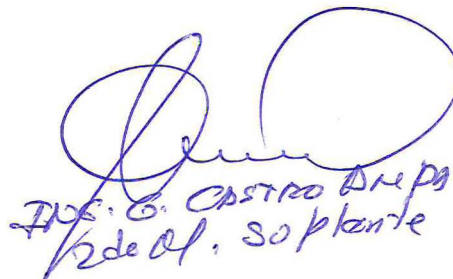 ING. G. CASTRO
2do Of. Soplante